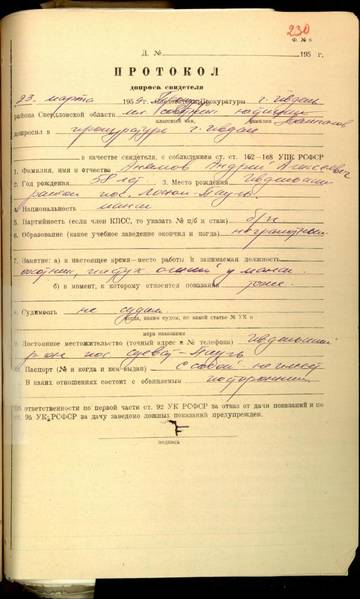 230
Ф. № 6
Д. № 195 г.
ПРОТОКОЛ
допроса свидетеля
23 марта 1959 г. Прокуратуры г. Ивдель
района Свердловской области мл. советник юстиции
классный чин, фамилия
допросил в прокуратуре г. Ивдель
в качестве свидетеля, с соблюдением ст. ст. 162—168 УПК РСФСР
1. Фамилия, имя и отчество Анямов Андрей Алексеевич
2. Год рождения 58 лет 3. Место рождения Ивдельский
район пос.
4. Национальность манси
5. Партийность (если член КПСС, то указать № п/б и стаж) б/п
6. Образование (какое учебное заведение окончил и когда) неграмотный
7. Занятие: а) в настоящее время—место работы и занимаемая должность
охотник, пастух оленей у манси.
б) в момент, к которому относятся показания тоже.
8. Судимость не судим
когда, каким судом, по какой статье № УК и
мера наказания
9. Постоянное местожительство (точный адрес и № телефона) Ивдельский
р-он пос Суеват-Пауль
10. Паспорт (№ и когда и кем выдан) с собой не имеет
В каких отношениях состоит с обвиняемым посторонний
Об ответственности по первой части ст. 92 УК РСФСР за отказ от дачи показаний и по
ст. 95 УК РСФСР за дачу заведомо ложных показаний предупрежден.
подпись